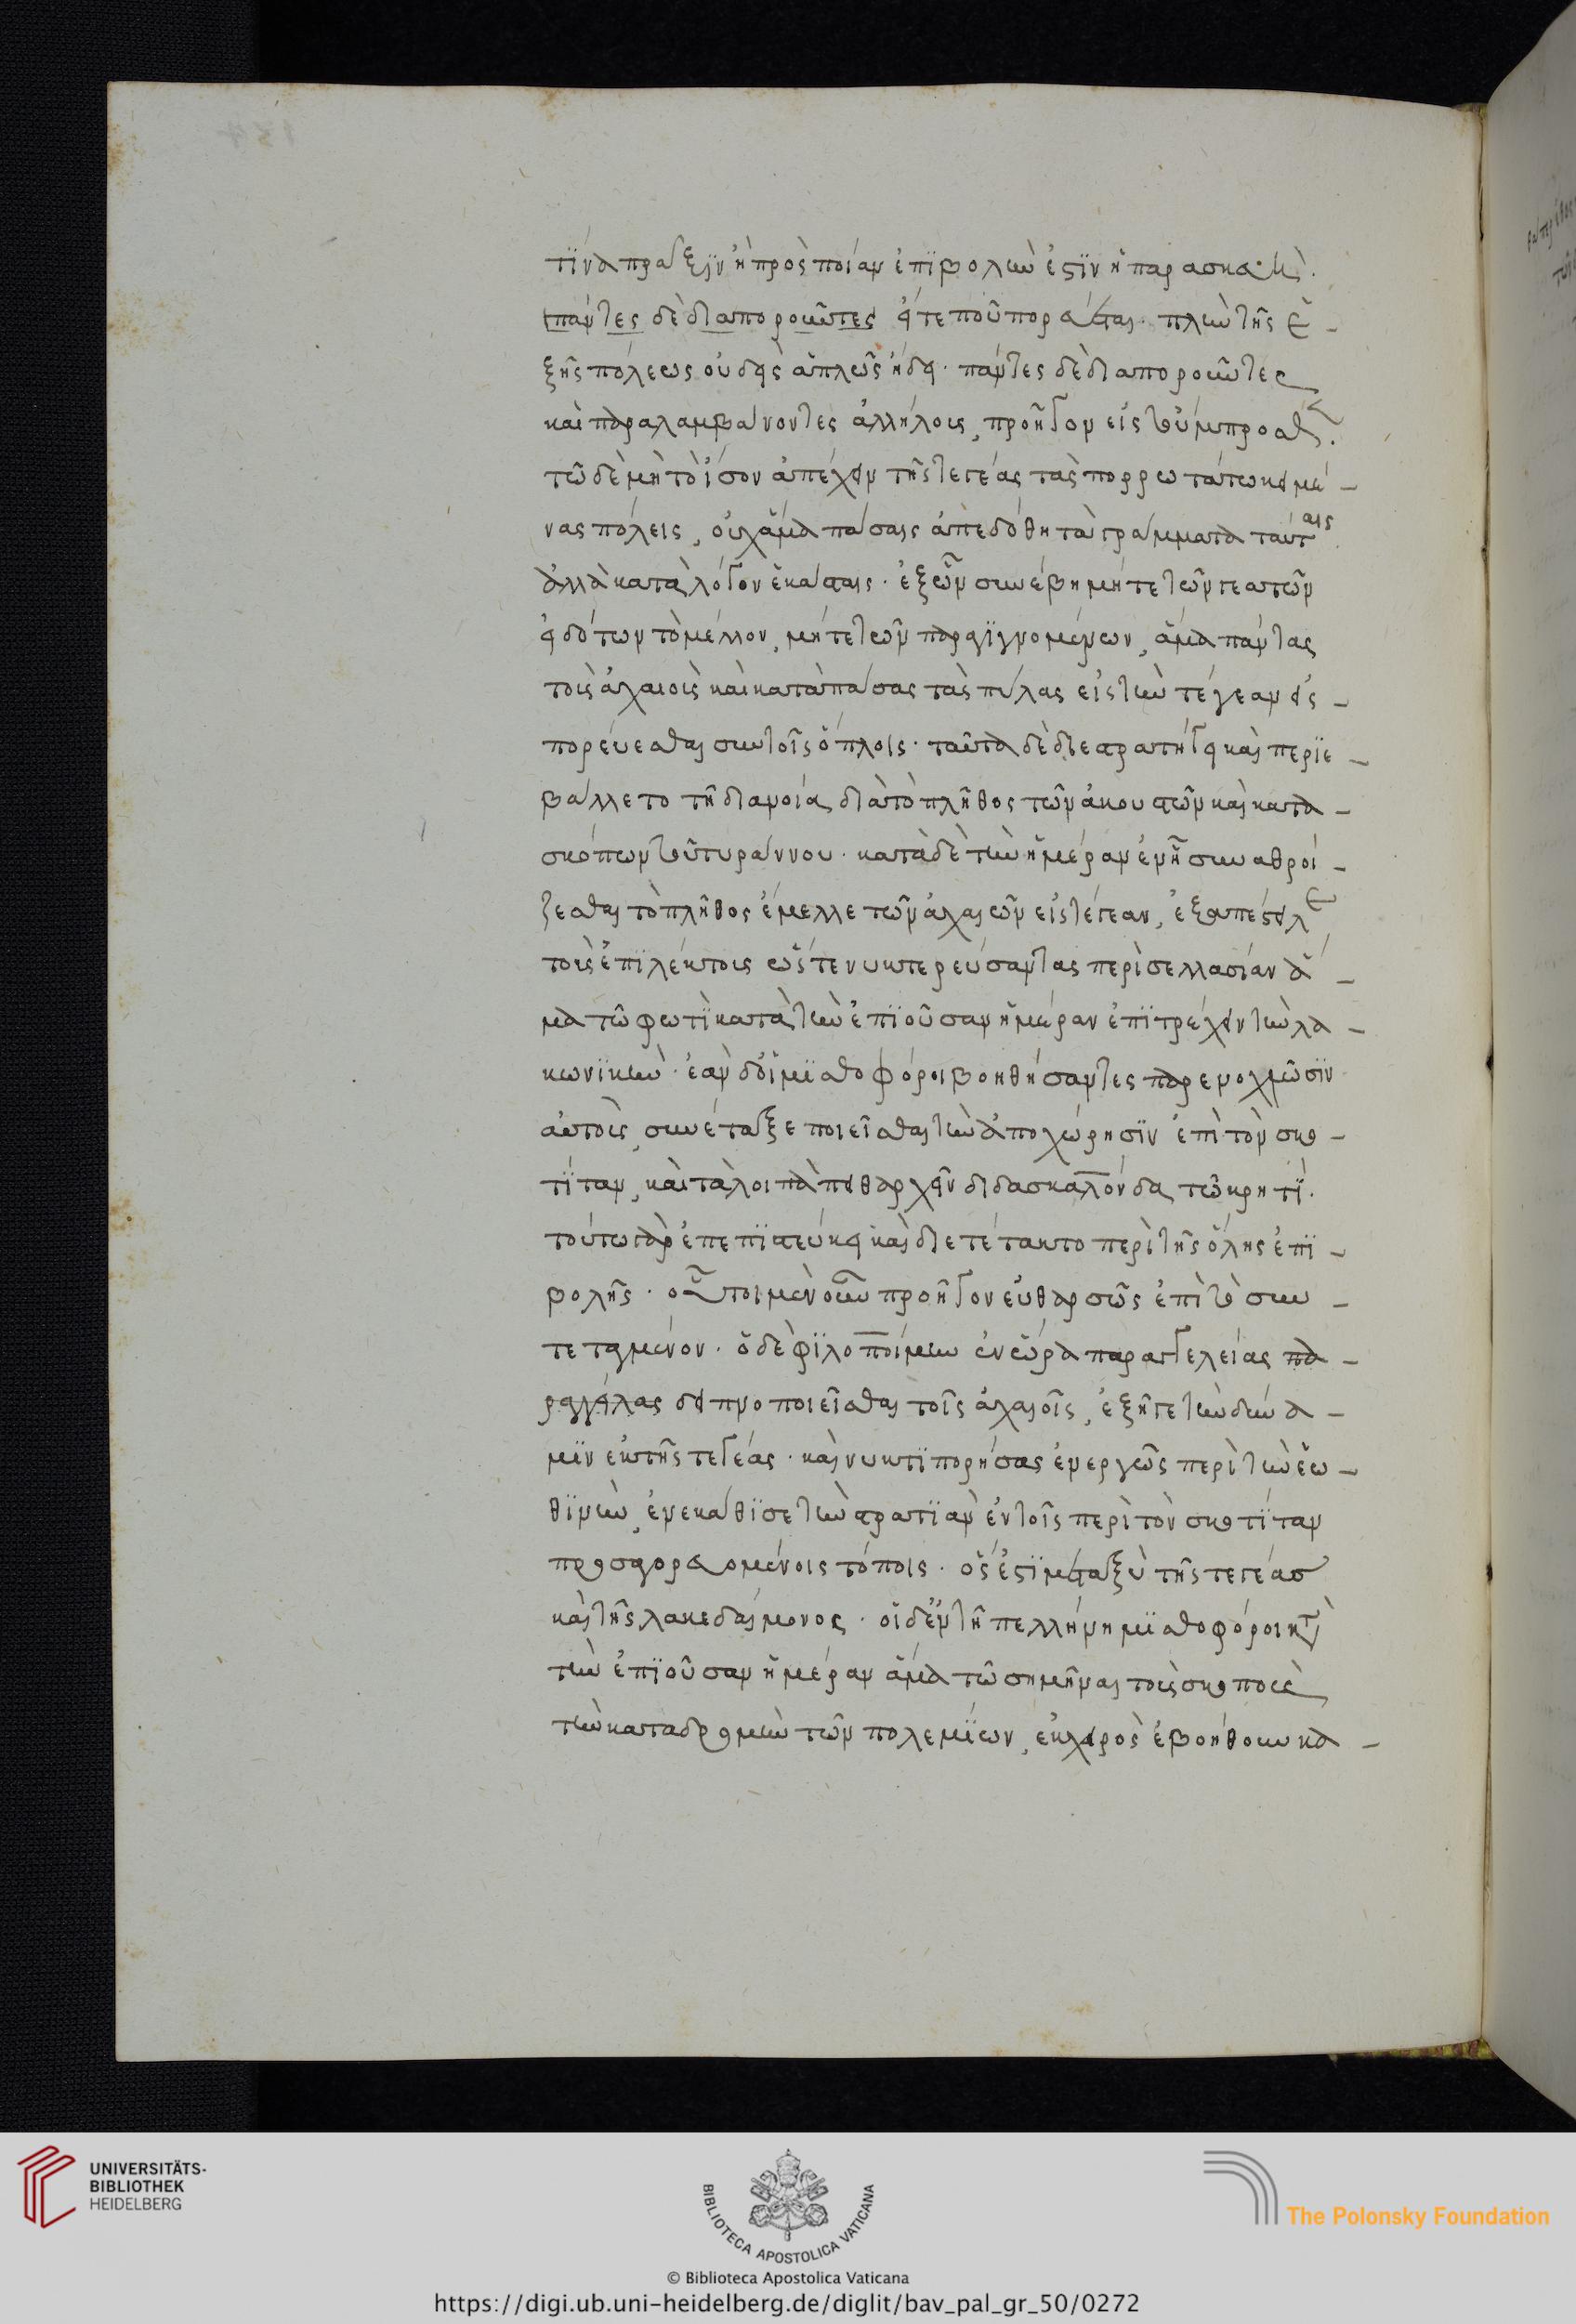 τίνα πράξιν ἢ πρὸς ποίαν ἐπιβολὴν ἐστὶν ἡ παρασκευὴ.
πάντες δὲ διαποροῦντες εἴτε ποῦ πορεύεται. πλὴν τῆς ἑ-
ξῆς πόλεως οὐδεὶς ἁπλῶς ᾔδει. πάντες δὲ διαποροῦντες
καὶ παραλαμβάνοντες ἀλλήλους, προῆγον εἰς τοὔμπροσθεν.
τῶ δὲ μὴ τὸ ἴσον ἀπέχειν τῆς τεγέας τὰς πορρωτάτω κειμέ-
νας πόλεις, οὐχ ἅμα πάσαις ἀπεδόθη τὰ γράμματα ταύταις
ἀλλὰ κατὰ λόγον ἑκάσταις. ἐξ ὧν συνέβη μήτε τῶν τεγεατῶν
εἰδότων τὸ μέλλον, μήτε τῶν παραγιγνομένων, ἅμα πάντας
τοὺς ἀχαιοὺς καὶ κατὰ πάσας τὰς πύλας εἰς τὴν τέγεαν εἰσ-
πορεύεσθαι σὺν τοῖς ὅπλοις. ταῦτα δὲ διεστρατήγει καὶ περιε-
βάλλετο τῆ διανοία, διὰ τὸ πλῆθος τῶν ἀκουστῶν καὶ κατα-
σκόπων τοῦ τυράννου. κατὰ δὲ τὴν ἡμέραν ἐν ἧ συναθροί-
ζεσθαι τὸ πλῆθος ἔμελλε τῶν ἀχαιῶν εἰς τέγεαν, ἐξαπέστειλε
τοὺς ἐπιλέκτους ὥστε νυκτερεύσαντας περὶ σελλασίαν ἅ-
μα τῶ φωτὶ κατὰ τὴν ἐπιοῦσαν ἡμέραν ἐπιτρέχειν τὴν λα-
κωνικὴν. ἐὰν δ' οἱ μισθοφόροι βοηθήσαντες παρενοχλῶσιν
αὐτοὺς, συνέταξε ποιεῖσθαι τὴν ἀποχώρησιν ἐπὶ τὸν σκο-
τίταν, καὶ τὰ λοιπὰ πειθαρχεῖν διδασκαλόνδα τῶ κρητὶ.
τούτω γὰρ ἐπεπιστεύκει καὶ διετέτακτο περὶ τῆς ὅλης ἐπι-
βολῆς. οὗτοι μὲν οὖν προῆγον εὐθαρσῶς ἐπὶ τὸ συν-
τεταγμένον. ὁ δὲ φιλοποίμην ἐν ὥρα παραγγελείας πα-
ραγγείλας δειπνοποιεῖσθαι τοῖς ἀχαιοῖς, ἐξῆγε τὴν δύνα-
μιν ἐκ τῆς τεγέας. καὶ νυκτιπορήσας ἐνεργῶς περὶ τὴν ἑω-
θινὴν, ἐνεκάθισε τὴν στρατιὰν ἐν τοῖς περὶ τὸν σκοτίταν
προσαγορευομένοις τόποις. ὅς ἐστι μεταξὺ τῆς τεγέασ
καὶ τῆς λακεδαίμονος. οἱ δ' ἐν τῆ πελλήνη μισθοφόροι κατὰ
τὴν ἐπιοῦσαν ἡμέραν ἅμα τῶ σημῆναι τοὺς σκοποὺς
τὴν καταδρομὴν τῶν πολεμίων, ἐκ χειρὸς ἐβοήθουν κα-
UNIVERSITÄTS-
BIBLIOTHEK
HEIDELBERG
BIBLIOTECA APOSTOLICA VATICANA
The Polonsky Foundation
© Biblioteca Apostolica Vaticana
https://digi.ub.uni-heidelberg.de/diglit/bav_pal_gr_50/0272